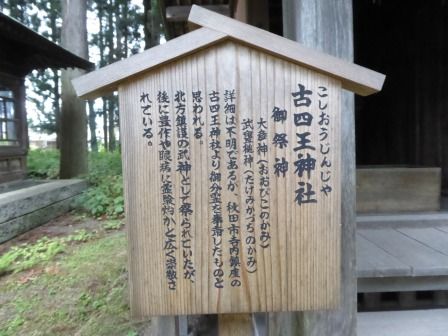 こしおうじんじゃ
古四王神社
御祭神
大彦神(おおびこのかみ)
武甕槌神(たけみかづちのかみ)
詳細は不明であるが、秋田市寺内鎮座の
古四王神社より御分霊を奉斎したものと
思われる。
北方鎮護の武神として祭られていたが、
後に豊作や眼病に霊験灼かと広く崇敬さ
れている。